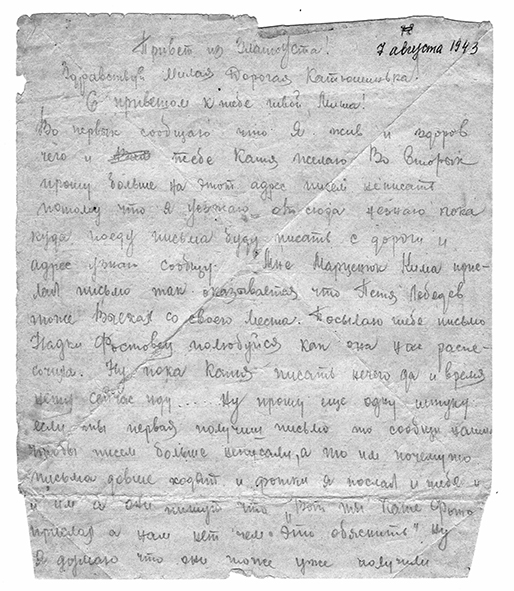 Привет из Златоуста!
7 августа 1943
Здравствуй Милая Дорогая Катюшинька!
С приветом к тебе твой Миша!
Во первых сообщаю что Я жив и здоров
чего и тебе Катя желаю Во вторых
прошу больше на этот адрес писем неписать
потому что я уезжаю от сюда незнаю пока
куда поеду письма буду писать с дороги и
адрес узнаю сообщу. Мне Марусюк Нима прис-
лал письмо так оказывается что Петя Лебедев
тоже Выехал со своего места. Посылаю тебе письмо
Надки полюбуйся как она уже распе-
Ну пока Катя писать нечего да и время
нету сейчас иду..... Ну прошу еще одну штуку
если ты первая получиш письмо то сообщи нашим
чтобы писем больше неписали, а то им почему то
письма дольше ходят и фотки я послал и тебе и
и им а они пишут что "Вот ты Кате Фото
прислал а нам нет чем это обяснить". Ну
Я думаю что они тоже уже получили